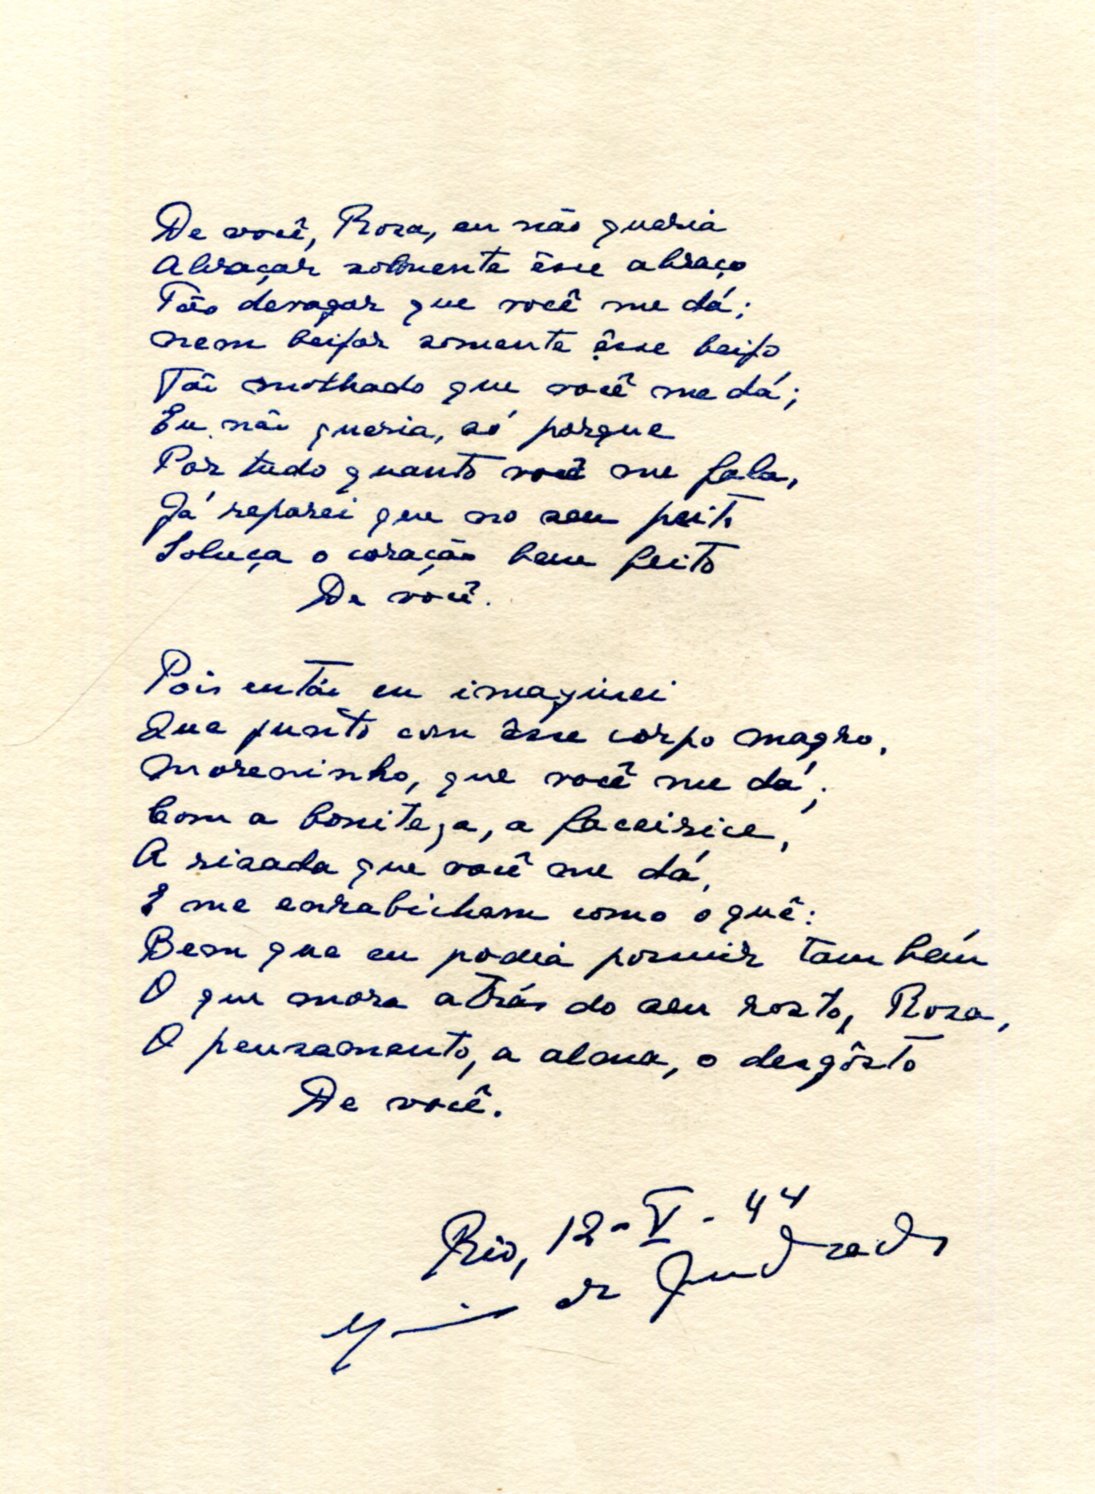 De você, Rosa, eu não queria
Abraçar sòmente êsse abraço
Tão devagar que você me dá;
Nem beijar somente êsse beijo
Tão molhado que você me dá;
Eu não queria, só porque
Por tudo quanto você me fala,
Já reparei que no seu peito
Soluça o coração bem feito
De você.
Pois então eu imaginei
Que junto com êsse corpo magro,
Moreninho, que você me dá;
Com a boniteza, a faceirice,
A risada que você me dá,
E me enrabicham como o quê:
Bem que eu podia possuir também
O que mora atrás do seu rosto, Rosa,
O pensamento, a alma, o desgôsto
De você.
Rio, 12-V-44
de Andrade